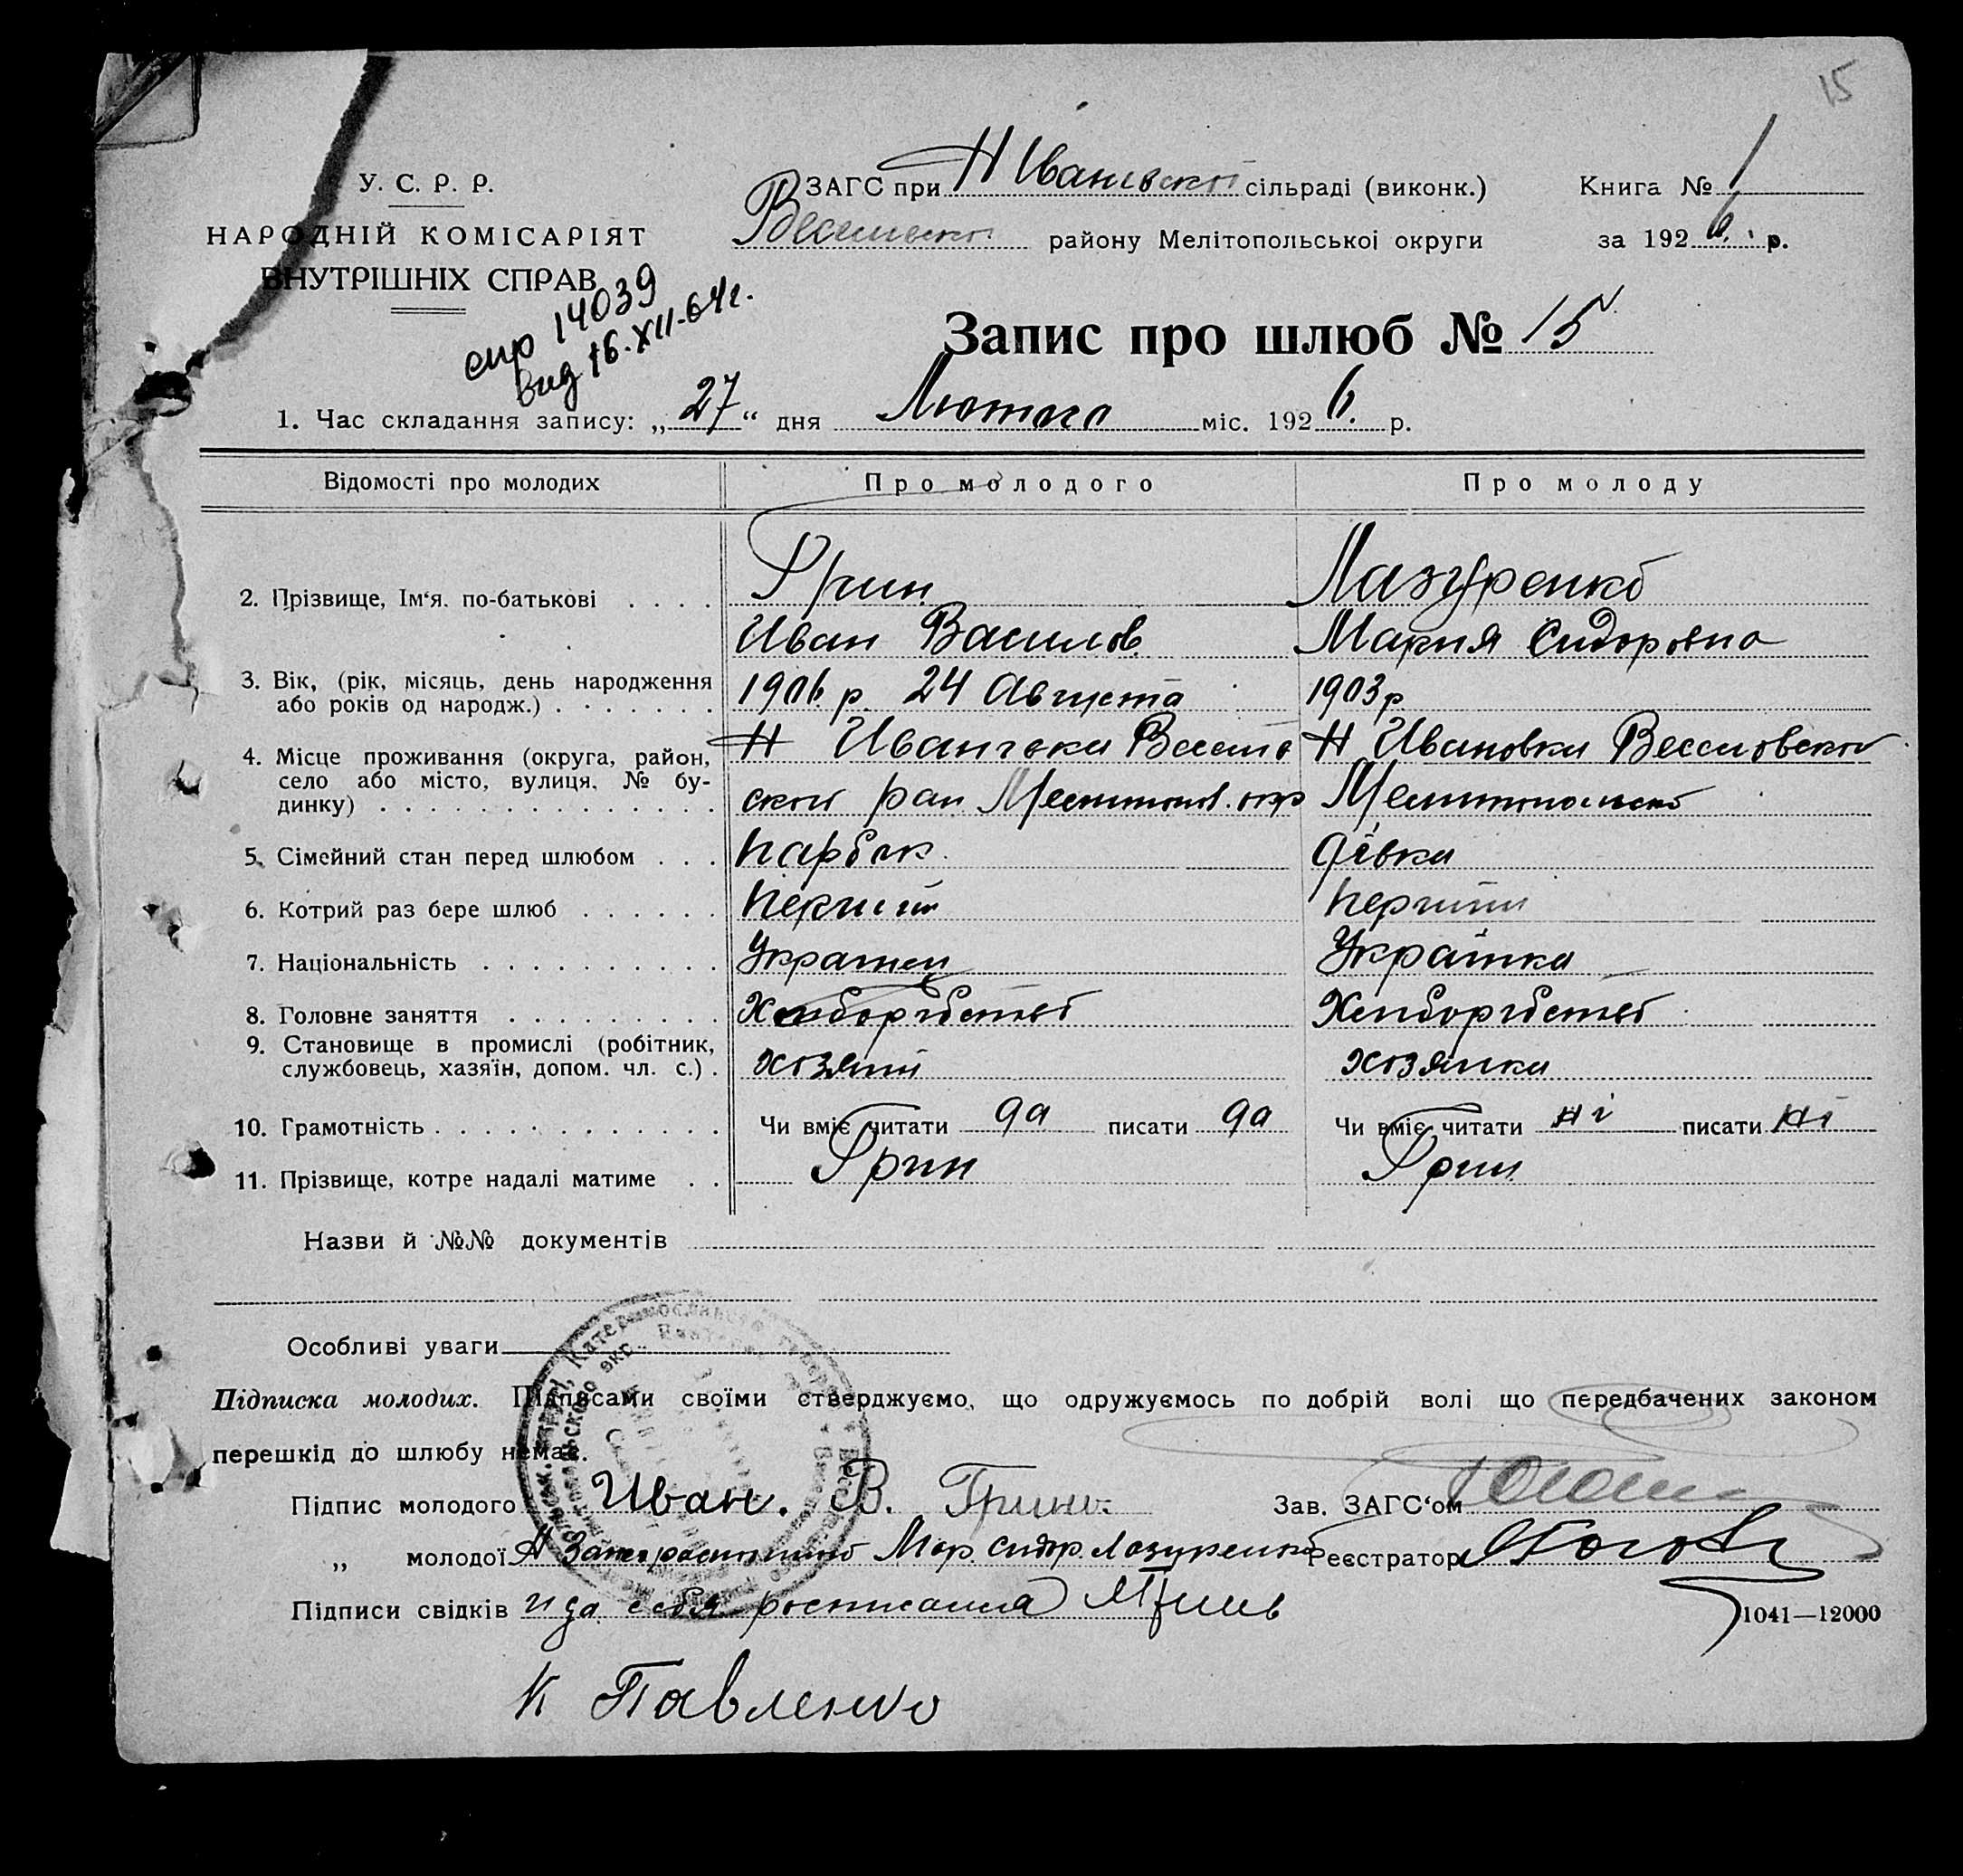 15
У. С. Р. Р.
НАРОДНІЙ КОМІСАРІЯТ
ВНУТРІШНІХ СПРАВ
ЗАГС при Н Іванівскої сільраді (виконк.)
Книга № 1
району Мелітопольської округи
за 1926. р.
спр 14039
вид 16.XII-64г.
Запис про шлюб № 15
1. Час складання запису: „27“ дня Лютого міс. 1926. р.
Відомості про молодих
Про молодого
Про молоду
2. Прізвище, Ім‘я. по-батькові
Грин
Лазуренко
Иван Василов.
Мария Сидоровна
3. Вік, (рік, місяць, день народження або років од народж.)
1906. р. 24 Августа
1903 р
4. Місце проживання (округа, район, село або місто, вулиця, № будинку)
Н Ивановка
Н Ивановка Веселовской
ской рай Мелитопол. окр
5. Сімейний стан перед шлюбом
Парубок
дівка
6. Котрий раз бере шлюб
Перший
Перший
7. Національність
Українец
Українка
8. Головне заняття
Хлиборобство
Хлиборобство
9. Становище в промислі (робітник, службовець, хазяїн, допом. чл. с.)
хозяин
хозяйка
10. Грамотність
Чи вміє читати да писати да
Чи вміє читати ні писати ні
11. Прізвище, котре надалі матиме
Грин
Грин
Назви й №№ документів
Особливі уваги
Підписка молодих. Підписами своїми стверджуємо, що одружуємось по добрій волі що передбачених законом
перешкід до шлюбу немає.
Підпис молодого Иван. В. Грин.
Зав. ЗАГС‘ом
„ молодої А Мар. Сидор. Лазуренко
Реєстратор
Підписи свідків и за себя
1041—12000
К Павленко